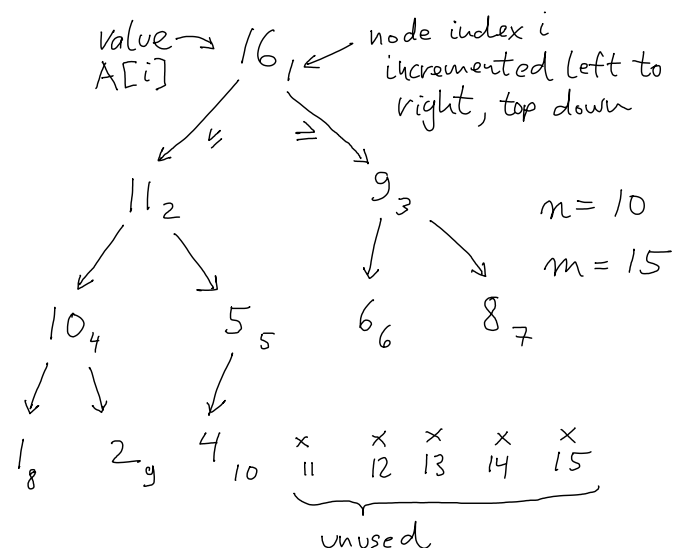 value → 16₁ ← node index i
A[i] incremented left to
right, top down
≥ ≥
11₂ 9₃ n = 10
m = 15
10₄ 5₅ 6₆ 8₇
1₈ 2₉ 4₁₀ x x x x x
11 12 13 14 15
unused